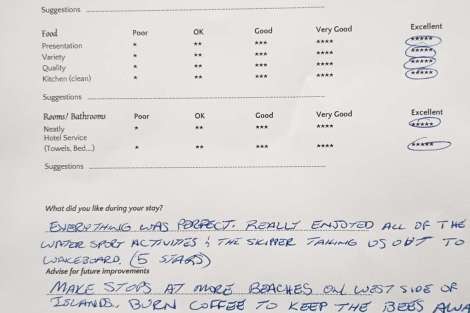 Suggestions
Food Poor OK Good Very Good Excellent
Presentation * ** *** **** *****
Variety * ** *** **** *****
Quality * ** *** **** *****
Kitchen (clean) * ** *** **** *****
Suggestions
Rooms/ Bathrooms Poor OK Good Very Good Excellent
Neatly * ** *** **** *****
Hotel Service
(Towels, Bed...) * ** *** **** *****
Suggestions
What did you like during your stay?
EVERYTHING WAS PERFECT. REALLY ENJOYED ALL OF THE
WATER SPORT ACTIVITIES & THE SKIPPER TAKING US OUT TO
WAKEBOARD. (5 STARS)
Advise for future improvements
MAKE STOPS AT MORE BEACHES ON WEST SIDE OF
ISLANDS. BURN COFFEE TO KEEP THE BEES AWA